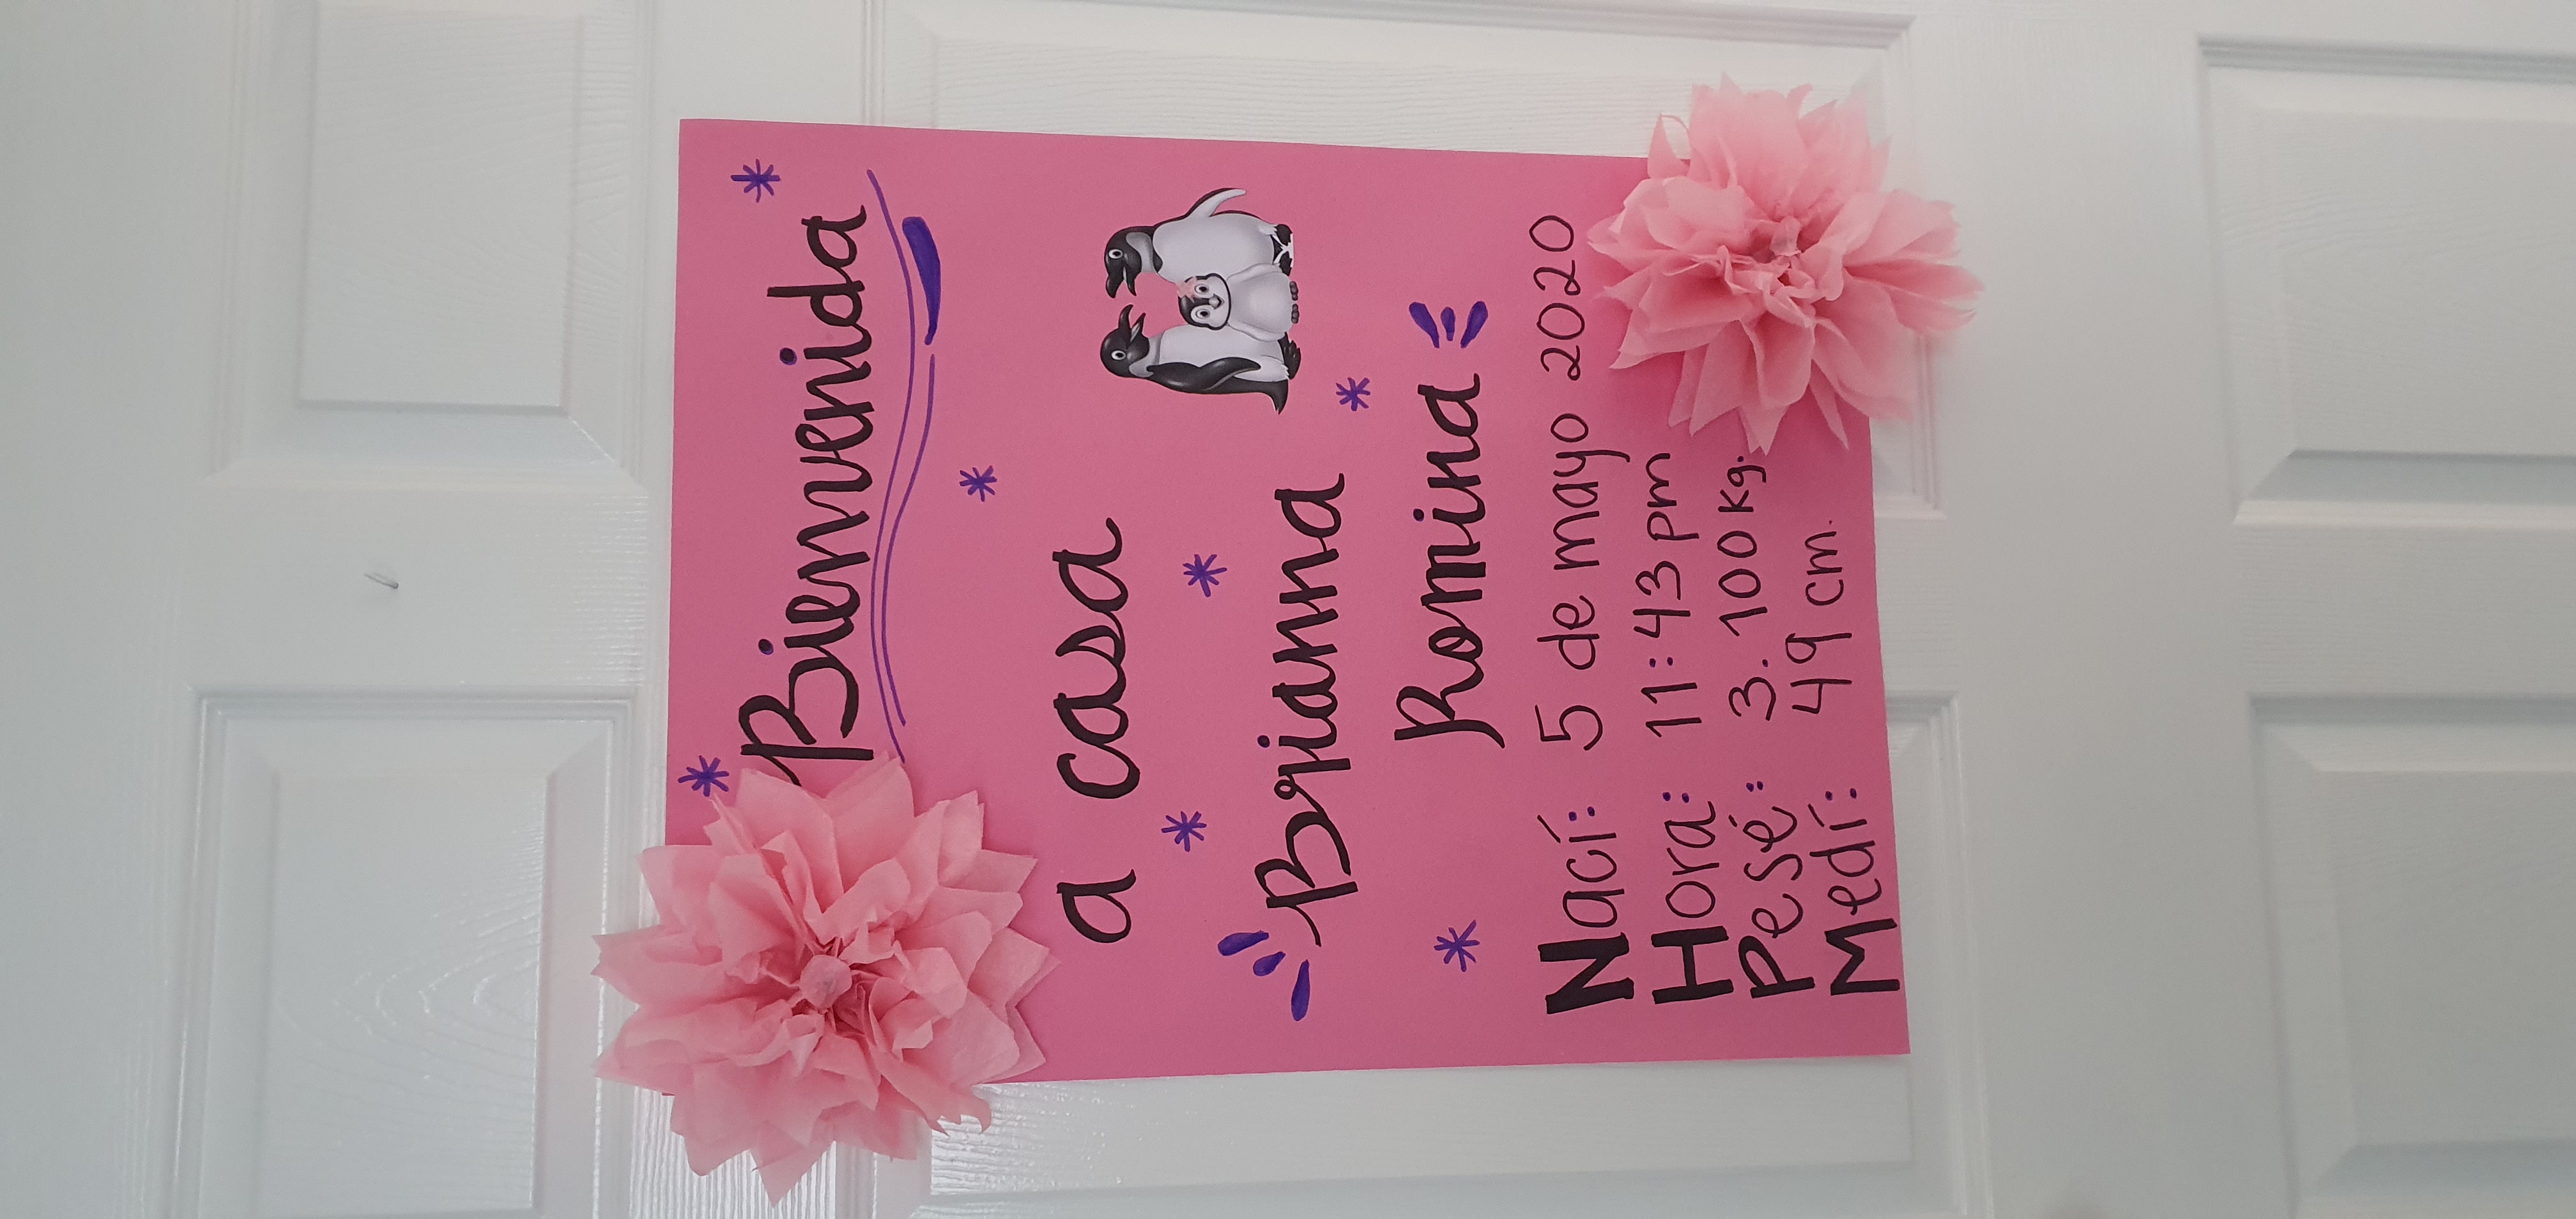 Bienvenida
a casa
Brianna
Romina
Nací: 5 de mayo 2020
Hora: 11:43 pm
Pesé: 3.100 kg.
Medí: 49 cm.